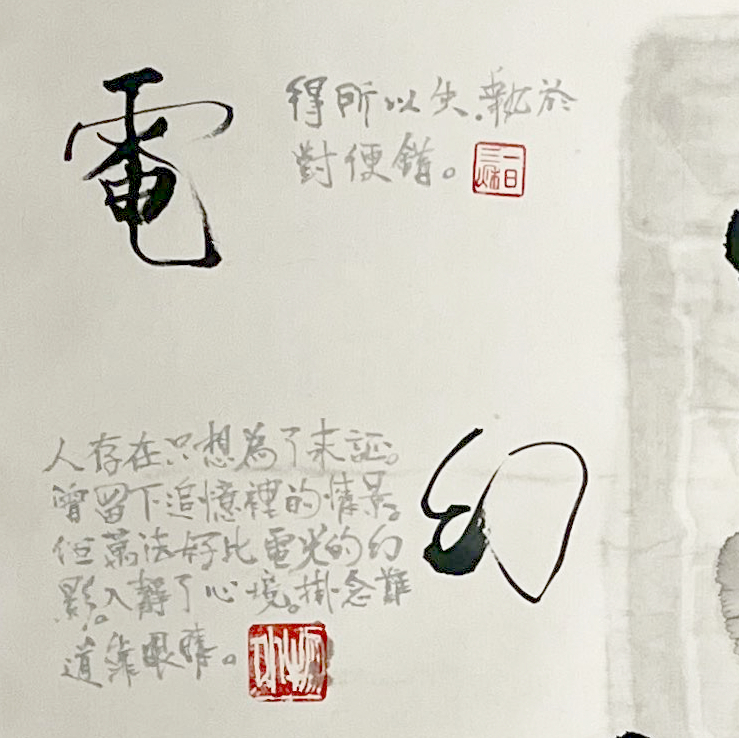 電
得所以失.執於
對便錯。
一日
人存在只想為了求証。
曾留下追憶裡的情景。
但萬法好比電光的幻
影。入靜了心境。掛念難
道靠眼睛。
幻